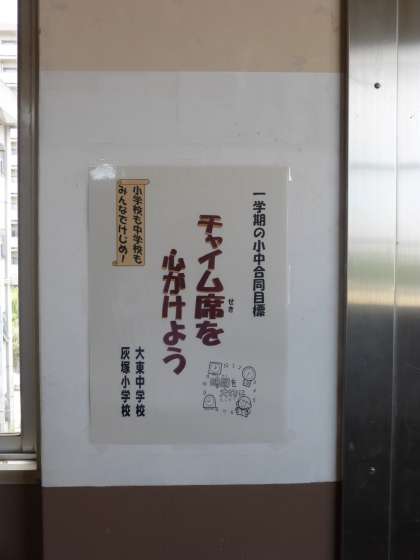 一学期の小中合同目標
チャイム席を
せき
心がけよう
時間を
大切に
小学校も中学校も
みんなでけじめ！
大東中学校
灰塚小学校